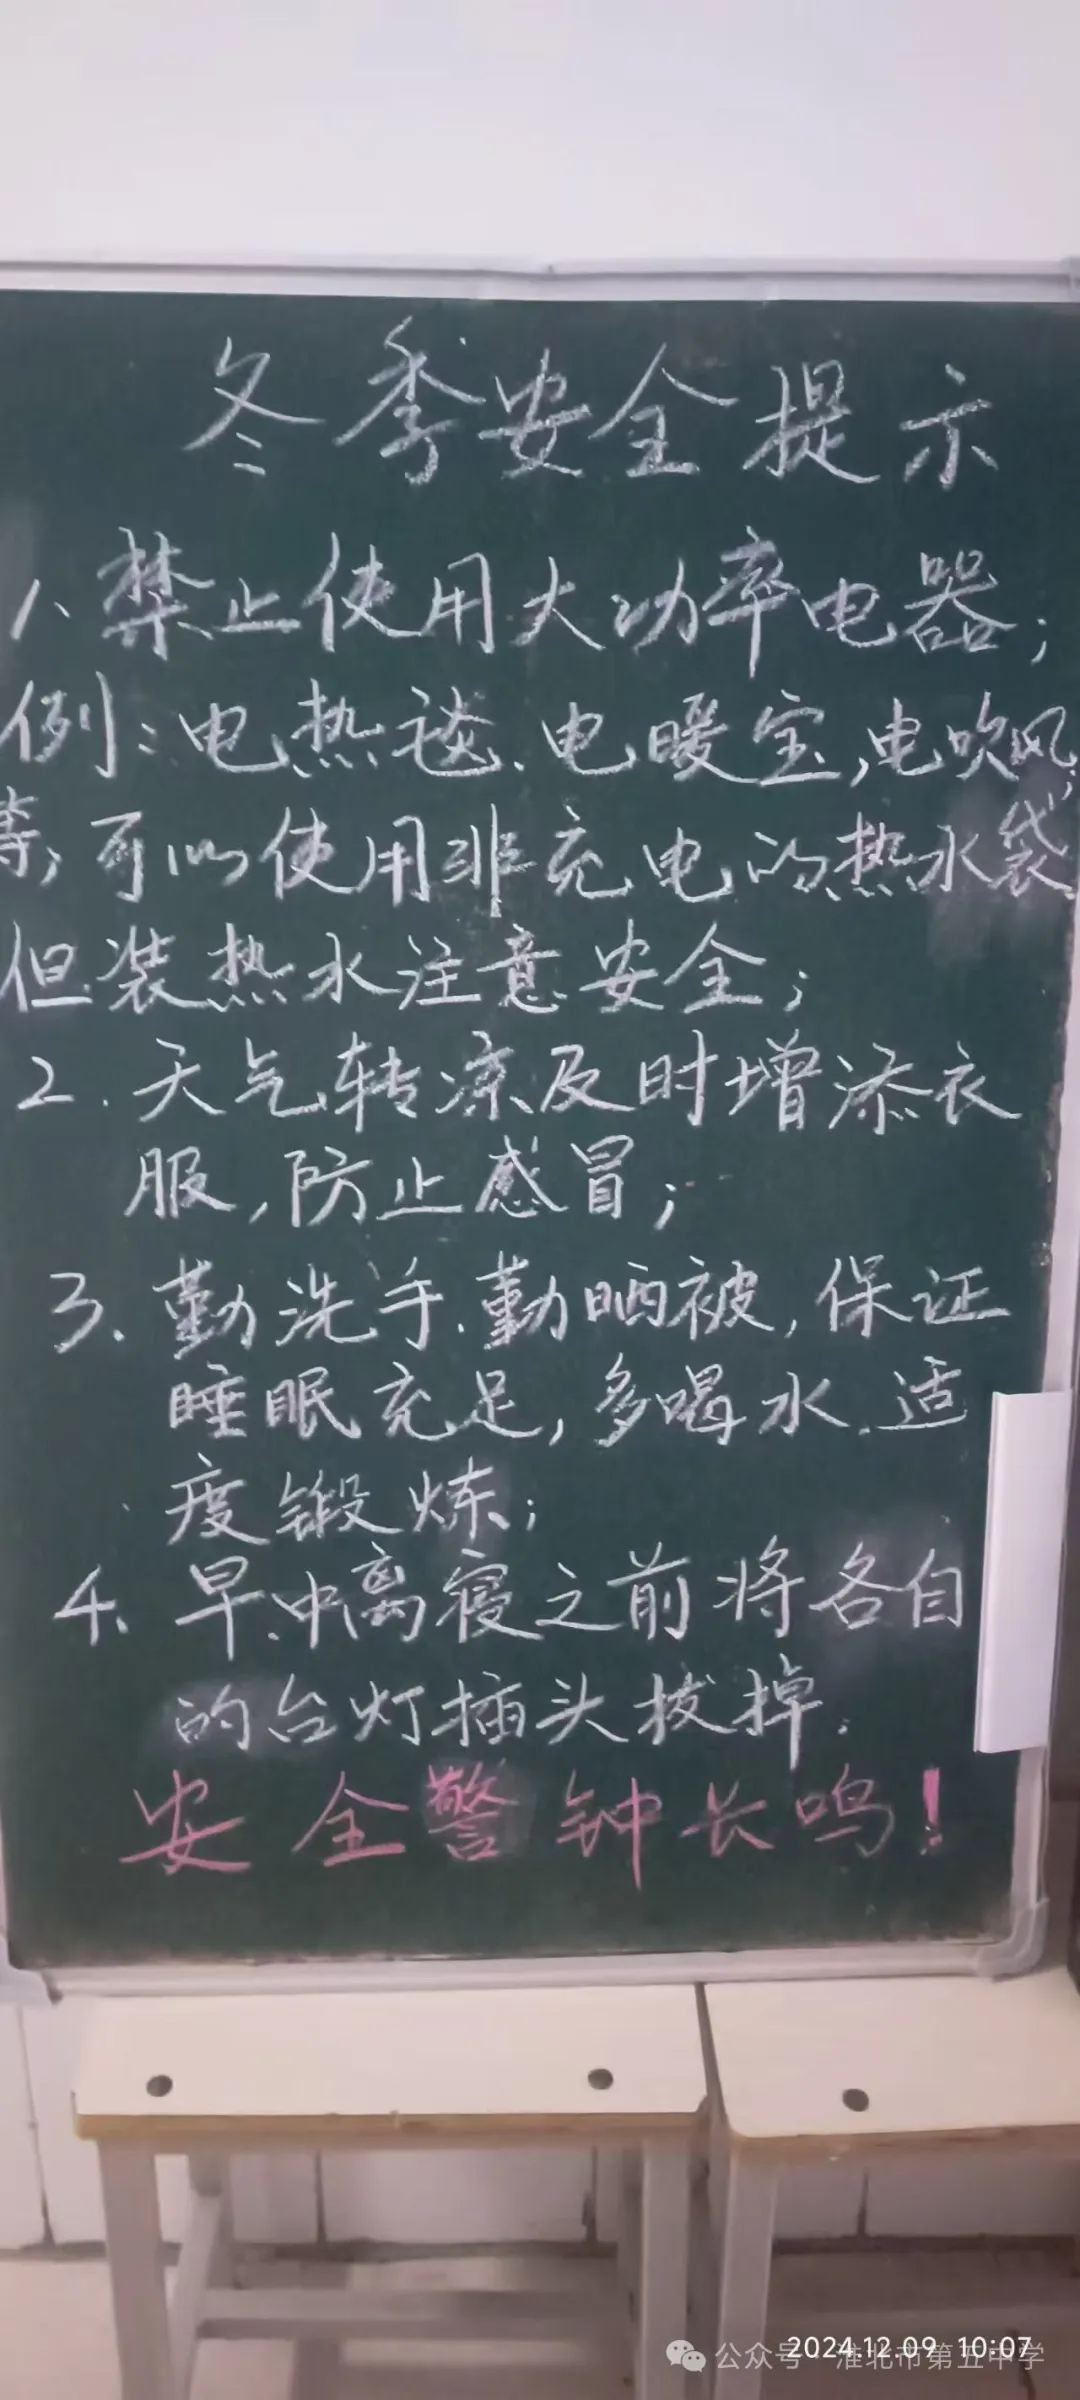 冬季安全提示
1、禁止使用大功率电器；
例：电热毯、电暖宝，电吹风，
等，可以使用非充电的热水袋
但装热水注意安全；
2. 天气转凉及时增添衣
服，防止感冒；
3. 勤洗手、勤晒被，保证
睡眠充足，多喝水、适
度锻炼；
4、早、中离寝之前将各自
的台灯插头拔掉.
安全警钟长鸣！
2024.12.09 10:07
公众号·淮北市第五中学